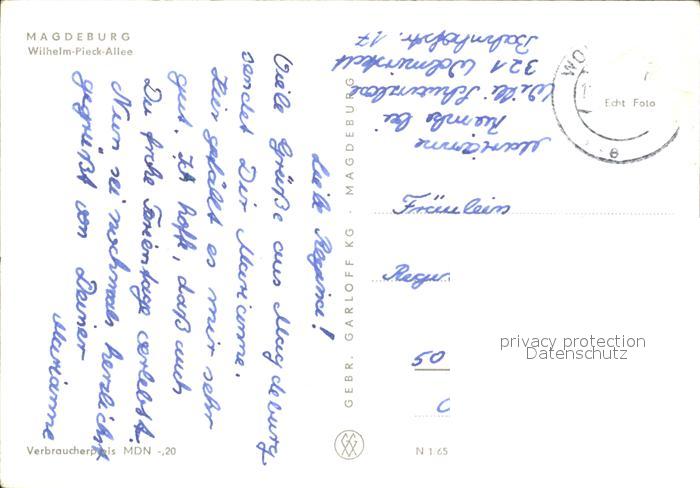 MAGDEBURG
Wilhelm-Pieck-Allee
Liebe Regina!
Viele Grüße aus Magdeburg
sendet Dir Marianne.
Hier gefällt es mir sehr
gut. Ich hoffe, daß auch
Du frohe Ferientage verlebst.
Nun sei nochmals herzlichst
gegrüßt von Deiner
Marianne
Verbraucherpreis MDN -,20
GEBR. GARLOFF KG · MAGDEBURG
Marianne
bei
Willi
321 Wolmirstedt
Bahnhofstr. 17
WO
Echt Foto
Fräulein
Regin
50
N 1 65
privacy protection
Datenschutz